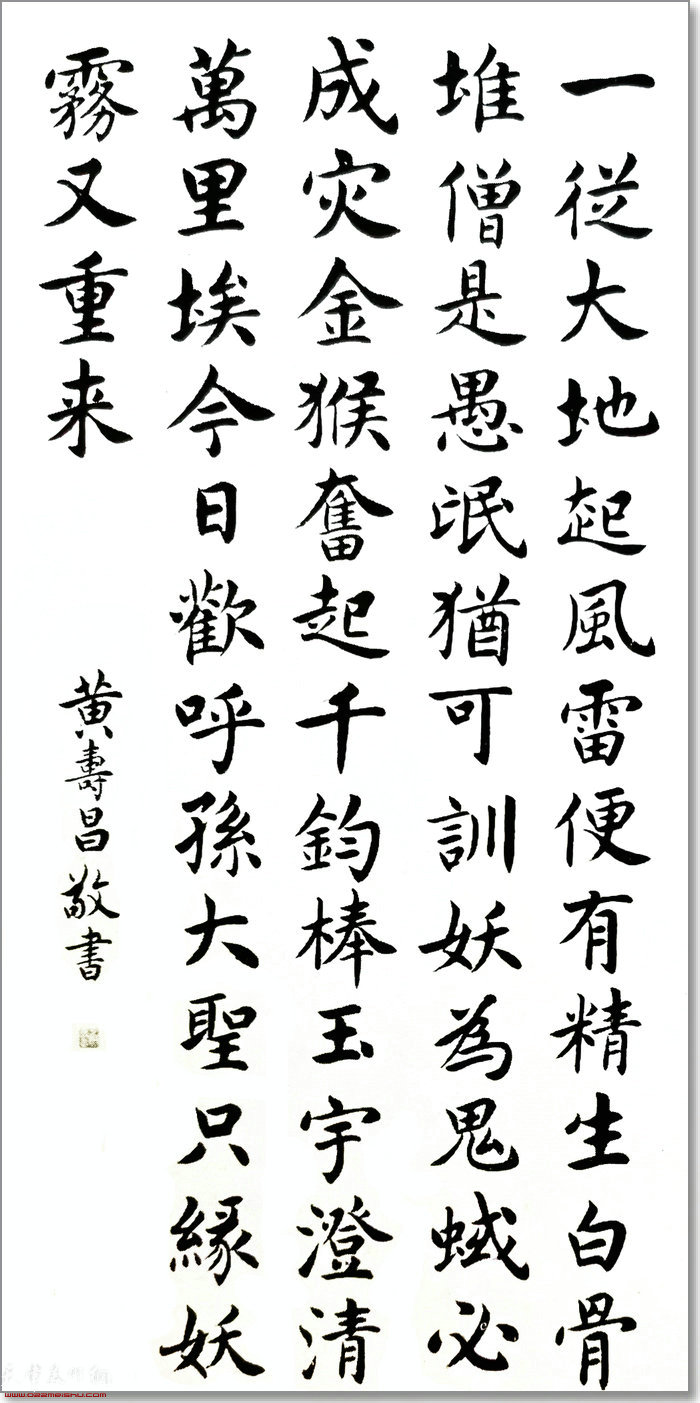 一從大地起風雷便有精生白骨
堆僧是愚氓猶可訓妖為鬼蜮必
成灾金猴奮起千鈞棒玉宇澄清
萬里埃今日歡呼孫大聖只緣妖
霧又重来
黄壽昌敬書
www.022meishu.com